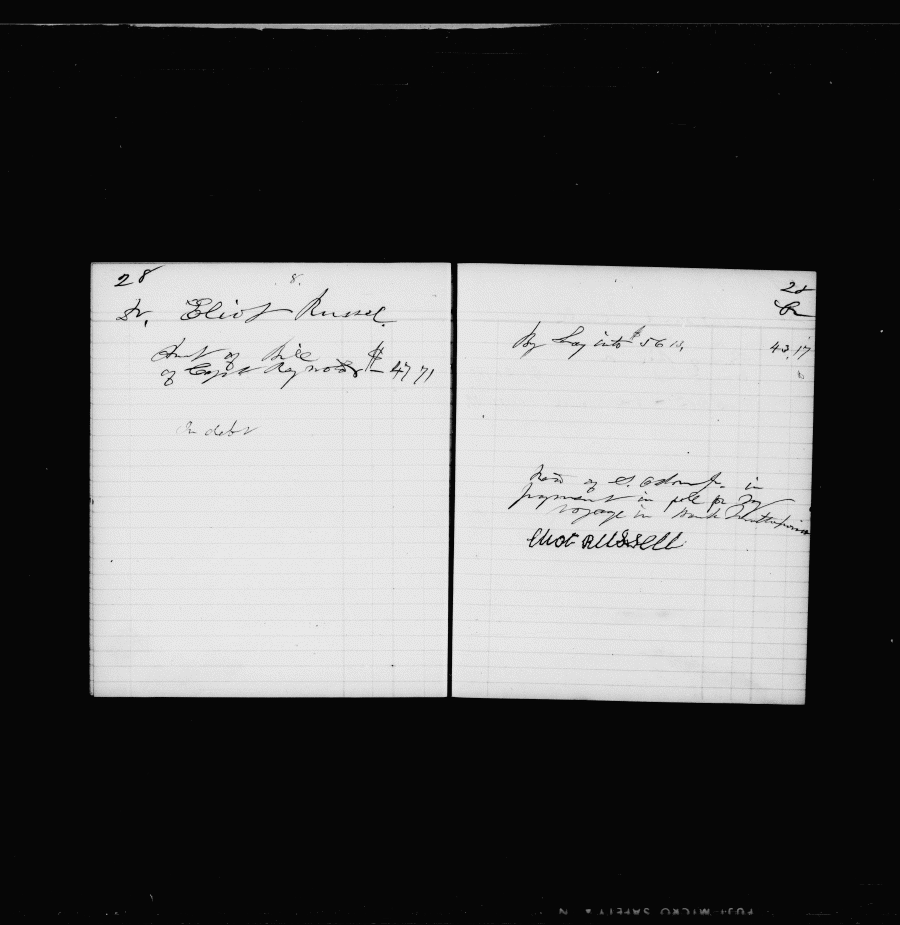 28
8.
Dr. Eliot Russel.
Amt of Bill
of Capt Reynolds $ 47 71
In debt
28
Cr
By Lay into $ 56 43.17
Recd of S. Osborn Jr. in
payment in full for my
voyage in Bark
Eliot Russell
FUJI MICRO SAFETY N